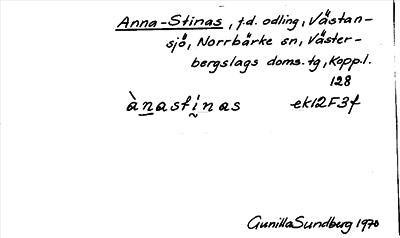 Anna-Stinas, f.d. odling, Västan-
sjö, Norrbärke sn, Väster-
bergslags doms. tg, Kopp.l.
128
ànastínas ek12F3f
Gunilla Sundberg 1970